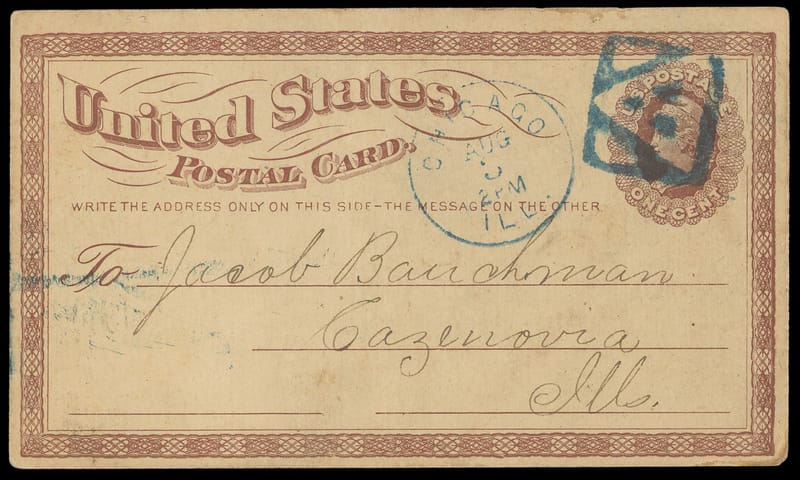 United States
POSTAL CARD.
U.S. POSTAGE
ONE CENT
CHICAGO
AUG
5
2PM
ILL.
WRITE THE ADDRESS ONLY ON THIS SIDE–THE MESSAGE ON THE OTHER
To Jacob Bauchman
Cazenovia
Ills.